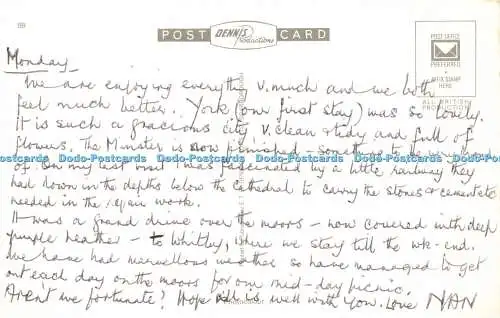 POST DENNIS Productions CARD
POST OFFICE
PREFERRED
AFFIX STAMP
HERE
ALL BRITISH
PRODUCTION
Monday
We are enjoying everything v. much and we both
feel much better. York (our first stay) was so lovely.
It is such a gracious city v. clean & tidy and full of
flowers. The Minster is now finished - something to be proud
of. On my last visit I was fascinated by a little railway they
Dodo-Postcards Dodo-Postcards Dodo-Postcards Dodo-Postcards Dodo-Postcards Dodo-Postcards
had down in the depths below the cathedral to carry the stones & cement etc
needed in the repair work.
It was a grand drive over the moors - now covered with deep
purple heather - to Whitby, where we stay till the wk-end.
We have had marvellous weather so have managed to get
out each day on the moors for our mid-day picnic.
Aren't we fortunate? Hope all is well with you. Love NAN